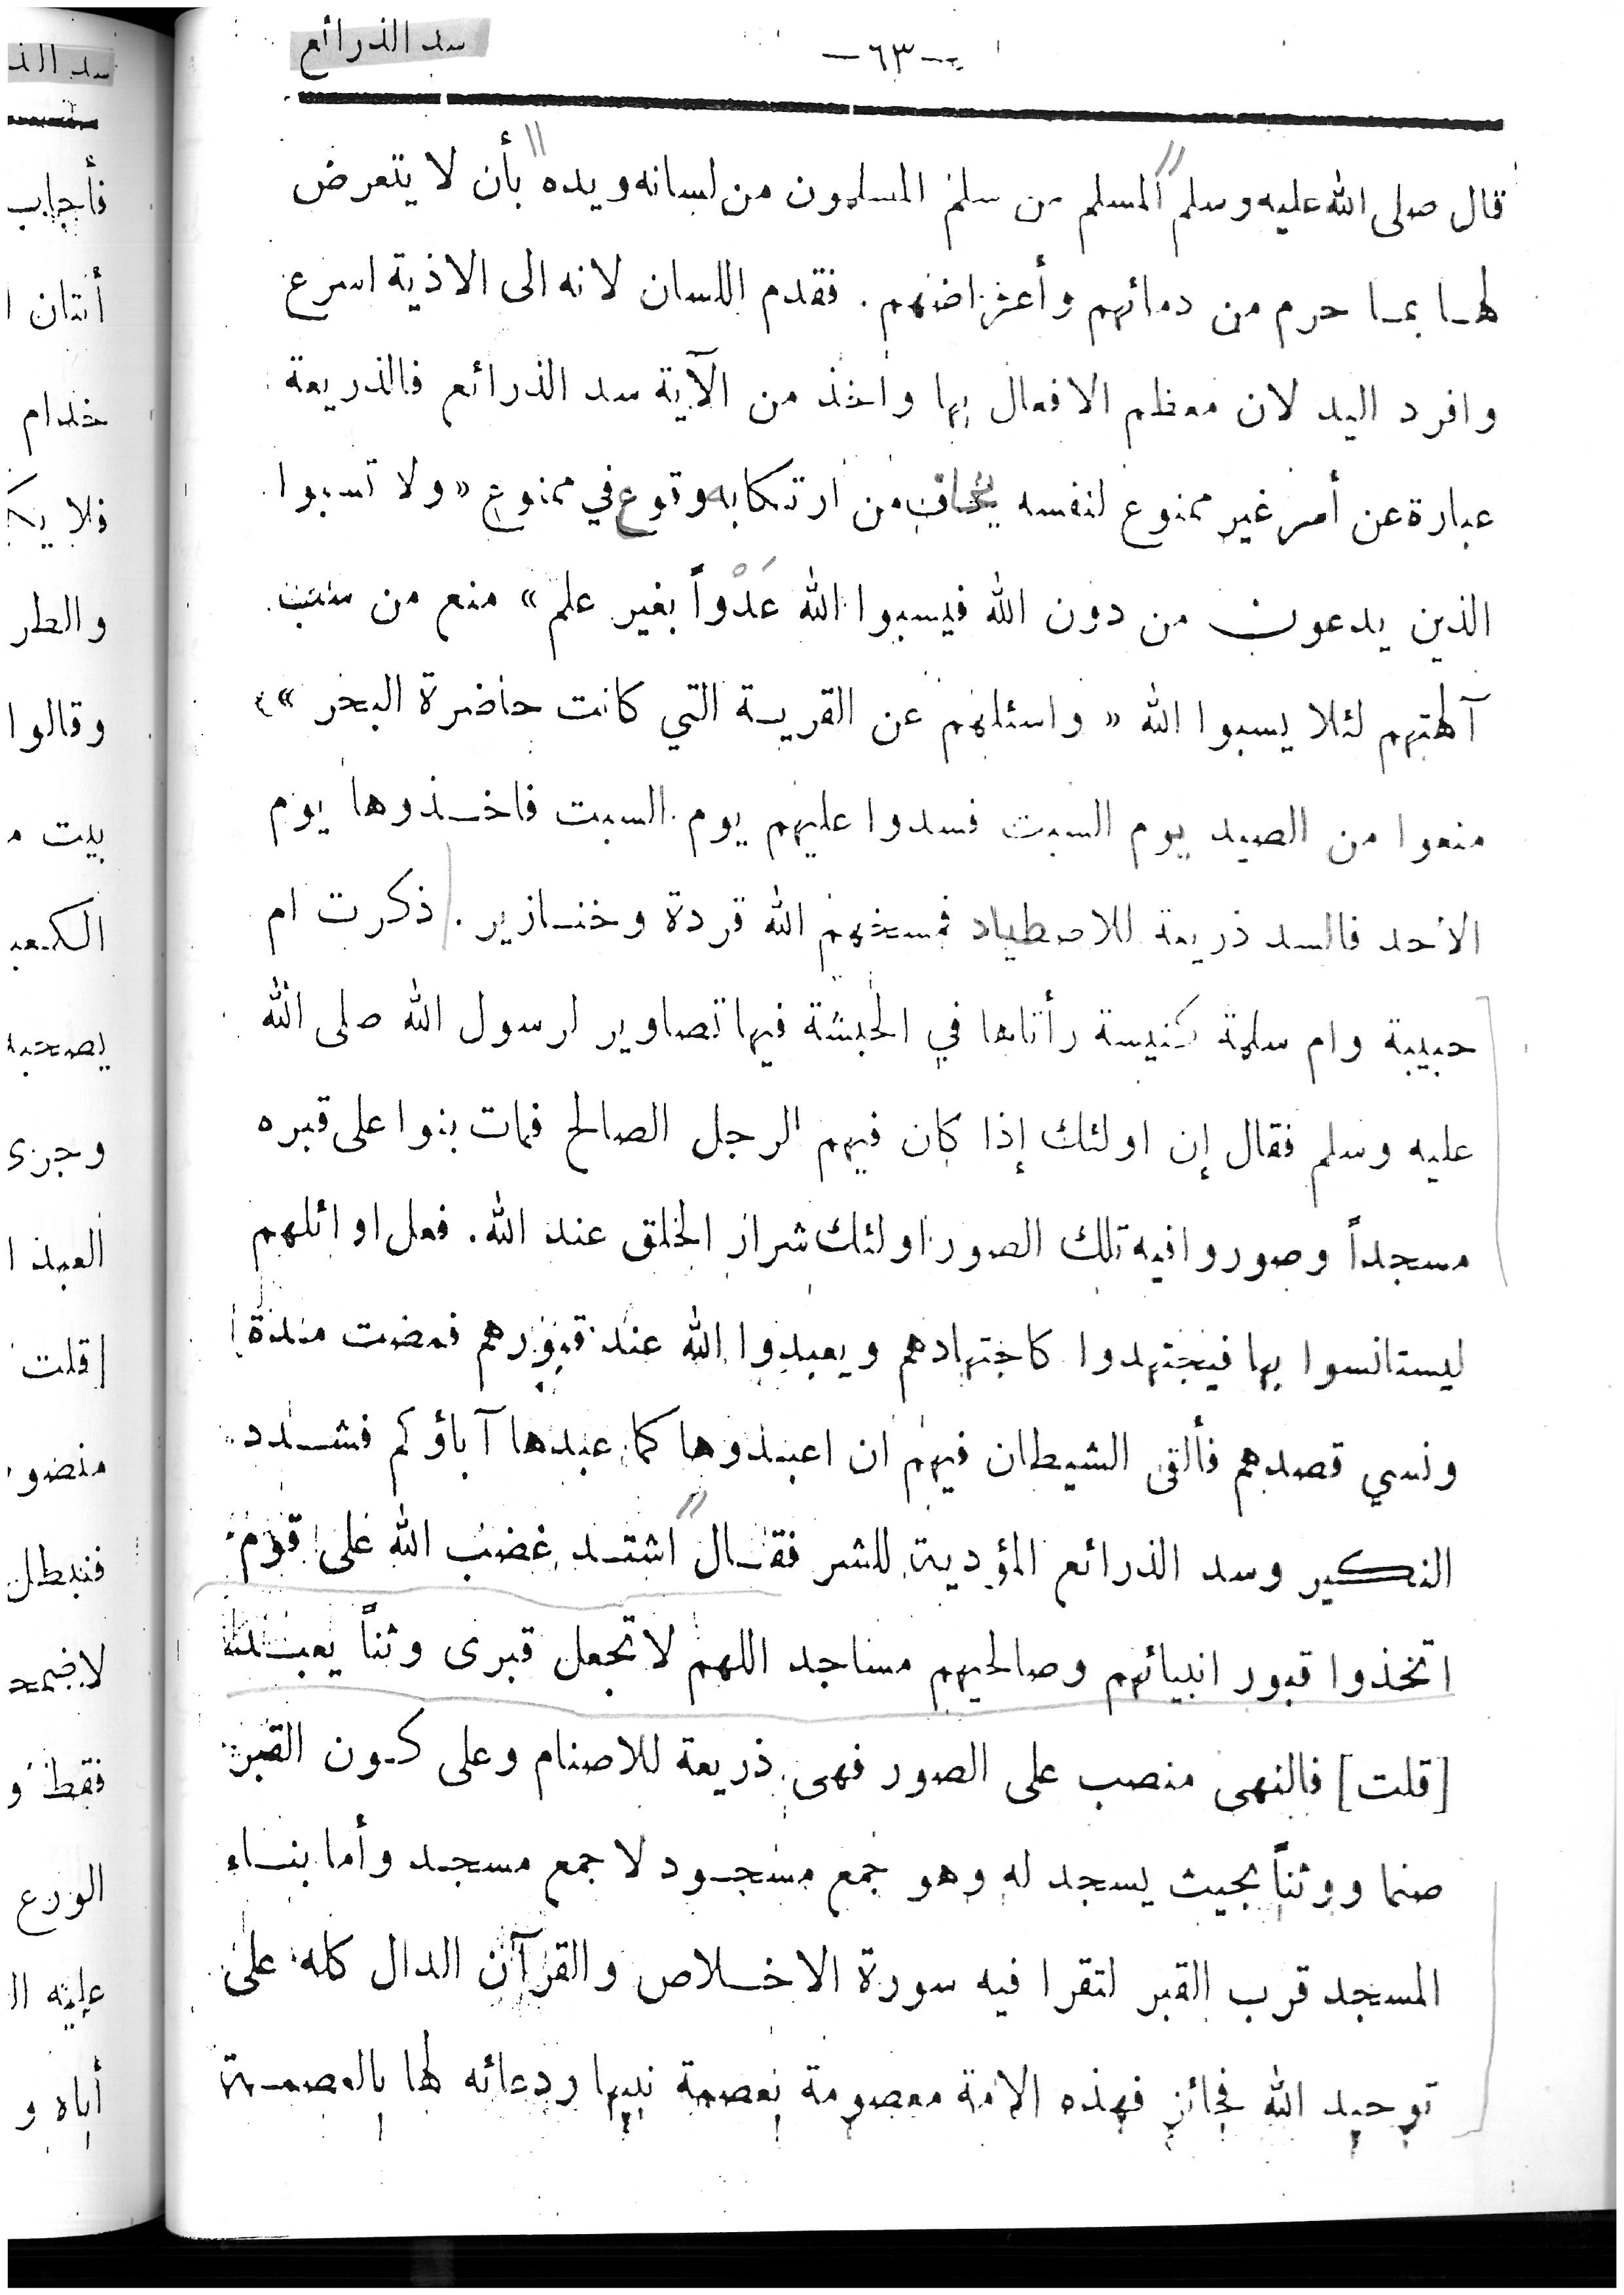 سد الذرائع
— ٦٣ —
قال صلى الله عليه وسلم "المسلم من سلم المسلمون من لسانه ويده" بأن لا يتعرض
لهـا بمـا حرم من دمائهم وأعراضهم . فقدم اللسان لانه الى الاذية اسرع
وافرد اليد لان معظم الافعال بها واخذ من الآية سد الذرائع فالذريعة
عبارة عن أمر غير ممنوع لنفسه يخاف من ارتكابه وقوع في ممنوع «ولا تسبوا
الذين يدعون من دون الله فيسبوا الله عَدْواً بغير علم» منع من سب
آلهتهم لئلا يسبوا الله « واسئلهم عن القريـة التي كانت حاضرة البحر »
منعوا من الصيد يوم السبت فسدوا عليهم يوم السبت فاخـذوها يوم
الأحد فالسد ذريعة للاصطياد فمسخهم الله قردة وخنـازير . ذكرت ام
حبيبة وام سلمة كنيسة رأتاها في الحبشة فيها تصاوير لرسول الله صلى الله
عليه وسلم فقال إن اولئك إذا كان فيهم الرجل الصالح فمات بنوا على قبره
مسجداً وصوروا فيه تلك الصور اولئك شرار الخلق عند الله . فعل اوائلهم
ليستانسوا بها فيجتهدوا كاجتهادهم ويعبدوا الله عند قبورهم فمضت مدة
ونسي قصدهم فألقى الشيطان فيهم ان اعبدوها كما عبدها آباؤكم فشـدد
النكير وسد الذرائع المؤدية للشر فقـال "اشتـد غضب الله على قوم
اتخذوا قبور انبيائهم وصالحيهم مساجد اللهم لا تجعل قبرى وثناً يعبـد
[قلت] فالنهى منصب على الصور فهى ذريعة للاصنام وعلى كـون القبر
صنما ووثناً بحيث يسجد له وهو جمع مسجـود لا جمع مسجـد وأما بنـاء
المسجد قرب القبر لتقرا فيه سورة الاخـلاص والقرآن الدال كله على
توحيد الله فجائز فهذه الامة معصومة بعصمة نبيها ودعائه لها بالعصمـة
سد الذ
فأجاب
أنتان ا
خدام
فلا يك
والطر
وقالوا
بيت م
الكعب
يصحبه
وجرى
العبد ا
[قلت
منصو
فتبطل
فقط و
الورع
عليه ال
أباه و